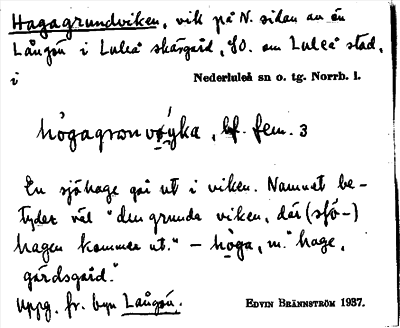 Hagagrundviken, vik på N. sidan av ön
Långön i Luleå skärgård, SO. om Luleå stad,
i Nederluleå sn o. tg. Norrb. l.
hògagrønvøyka, bf. fem. 3
En sjöhage går ut i viken. Namnet be-
tyder väl "den grunda viken, där (sjö-)
hagen kommer ut." – hòga, m. "hage,
gärdsgård."
Uppg. fr. byn Långön. EDVIN BRÄNNSTRÖM 1937.